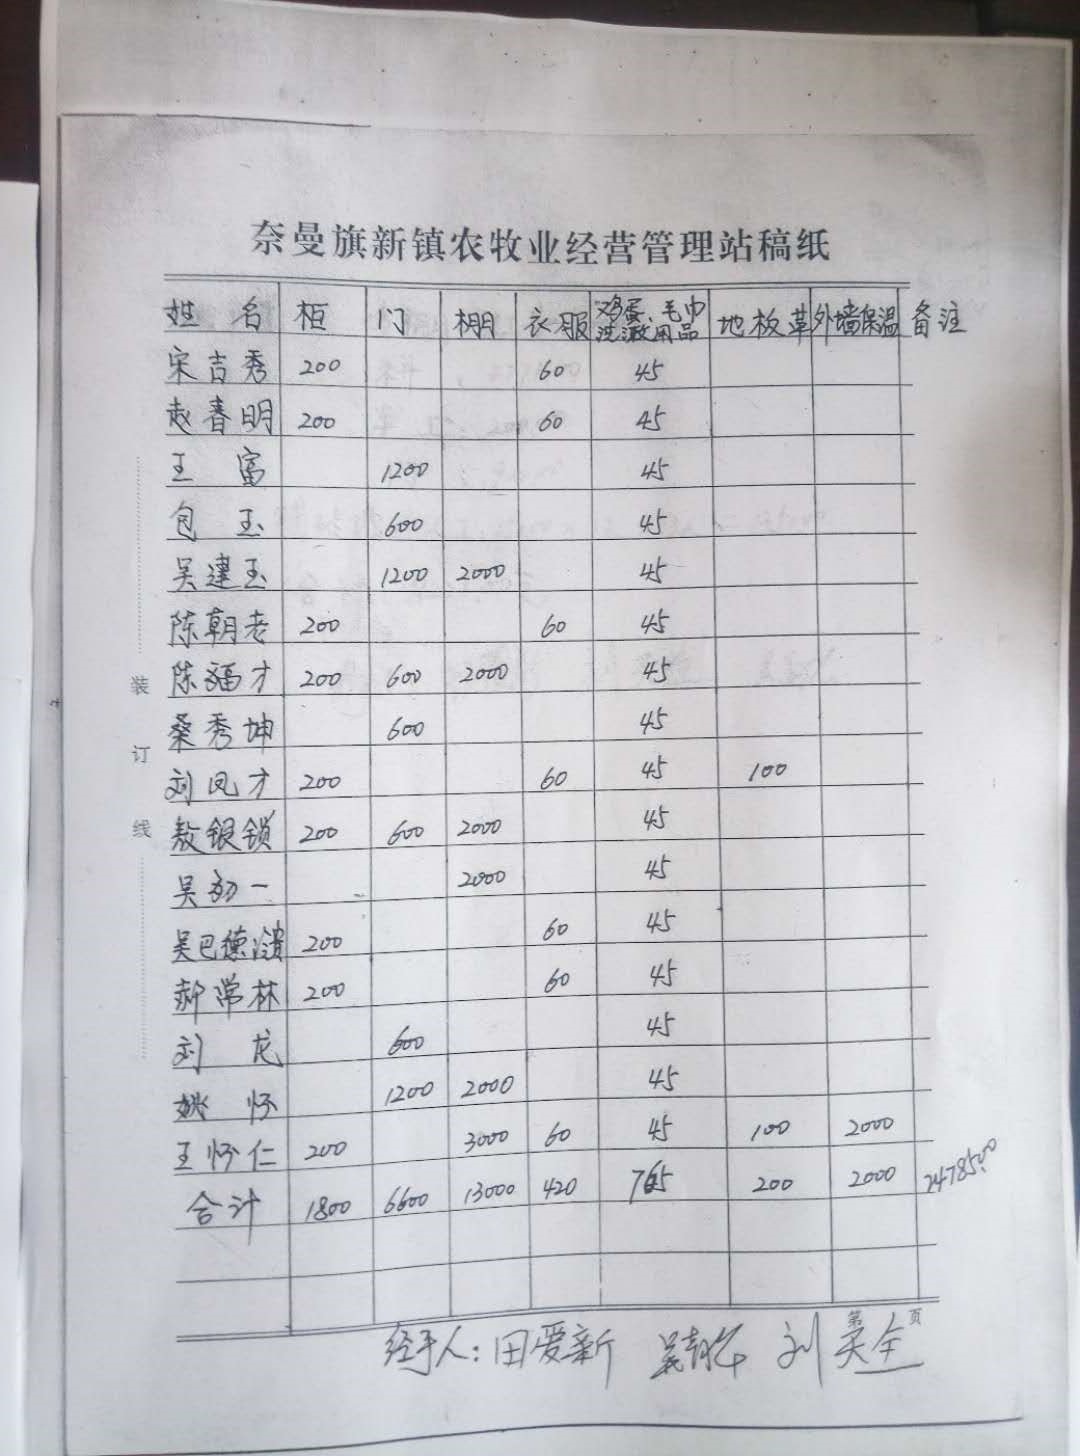 奈曼旗新镇农牧业经营管理站稿纸
姓名 柜 门 棚 衣服 鸡蛋、毛巾洗漱用品 地板革 外墙保温 备注
宋吉秀 200 60 45
赵春明 200 60 45
王富 1200 45
包玉 600 45
吴建玉 1200 2000 45
陈朝老 200 60 45
陈福才 200 600 2000 45
桑秀坤 600 45
刘凤才 200 60 45 100
敖银锁 200 600 2000 45
吴初一 2000 45
吴巴德 200 60 45
郝常林 200 60 45
刘龙 600 45
姚怀 1200 2000 45
王怀仁 200 3000 60 45 100 2000
合计 1800 6600 13000 420 765 200 2000 24785.00
装订线
第 页
经手人：田爱新 刘英全